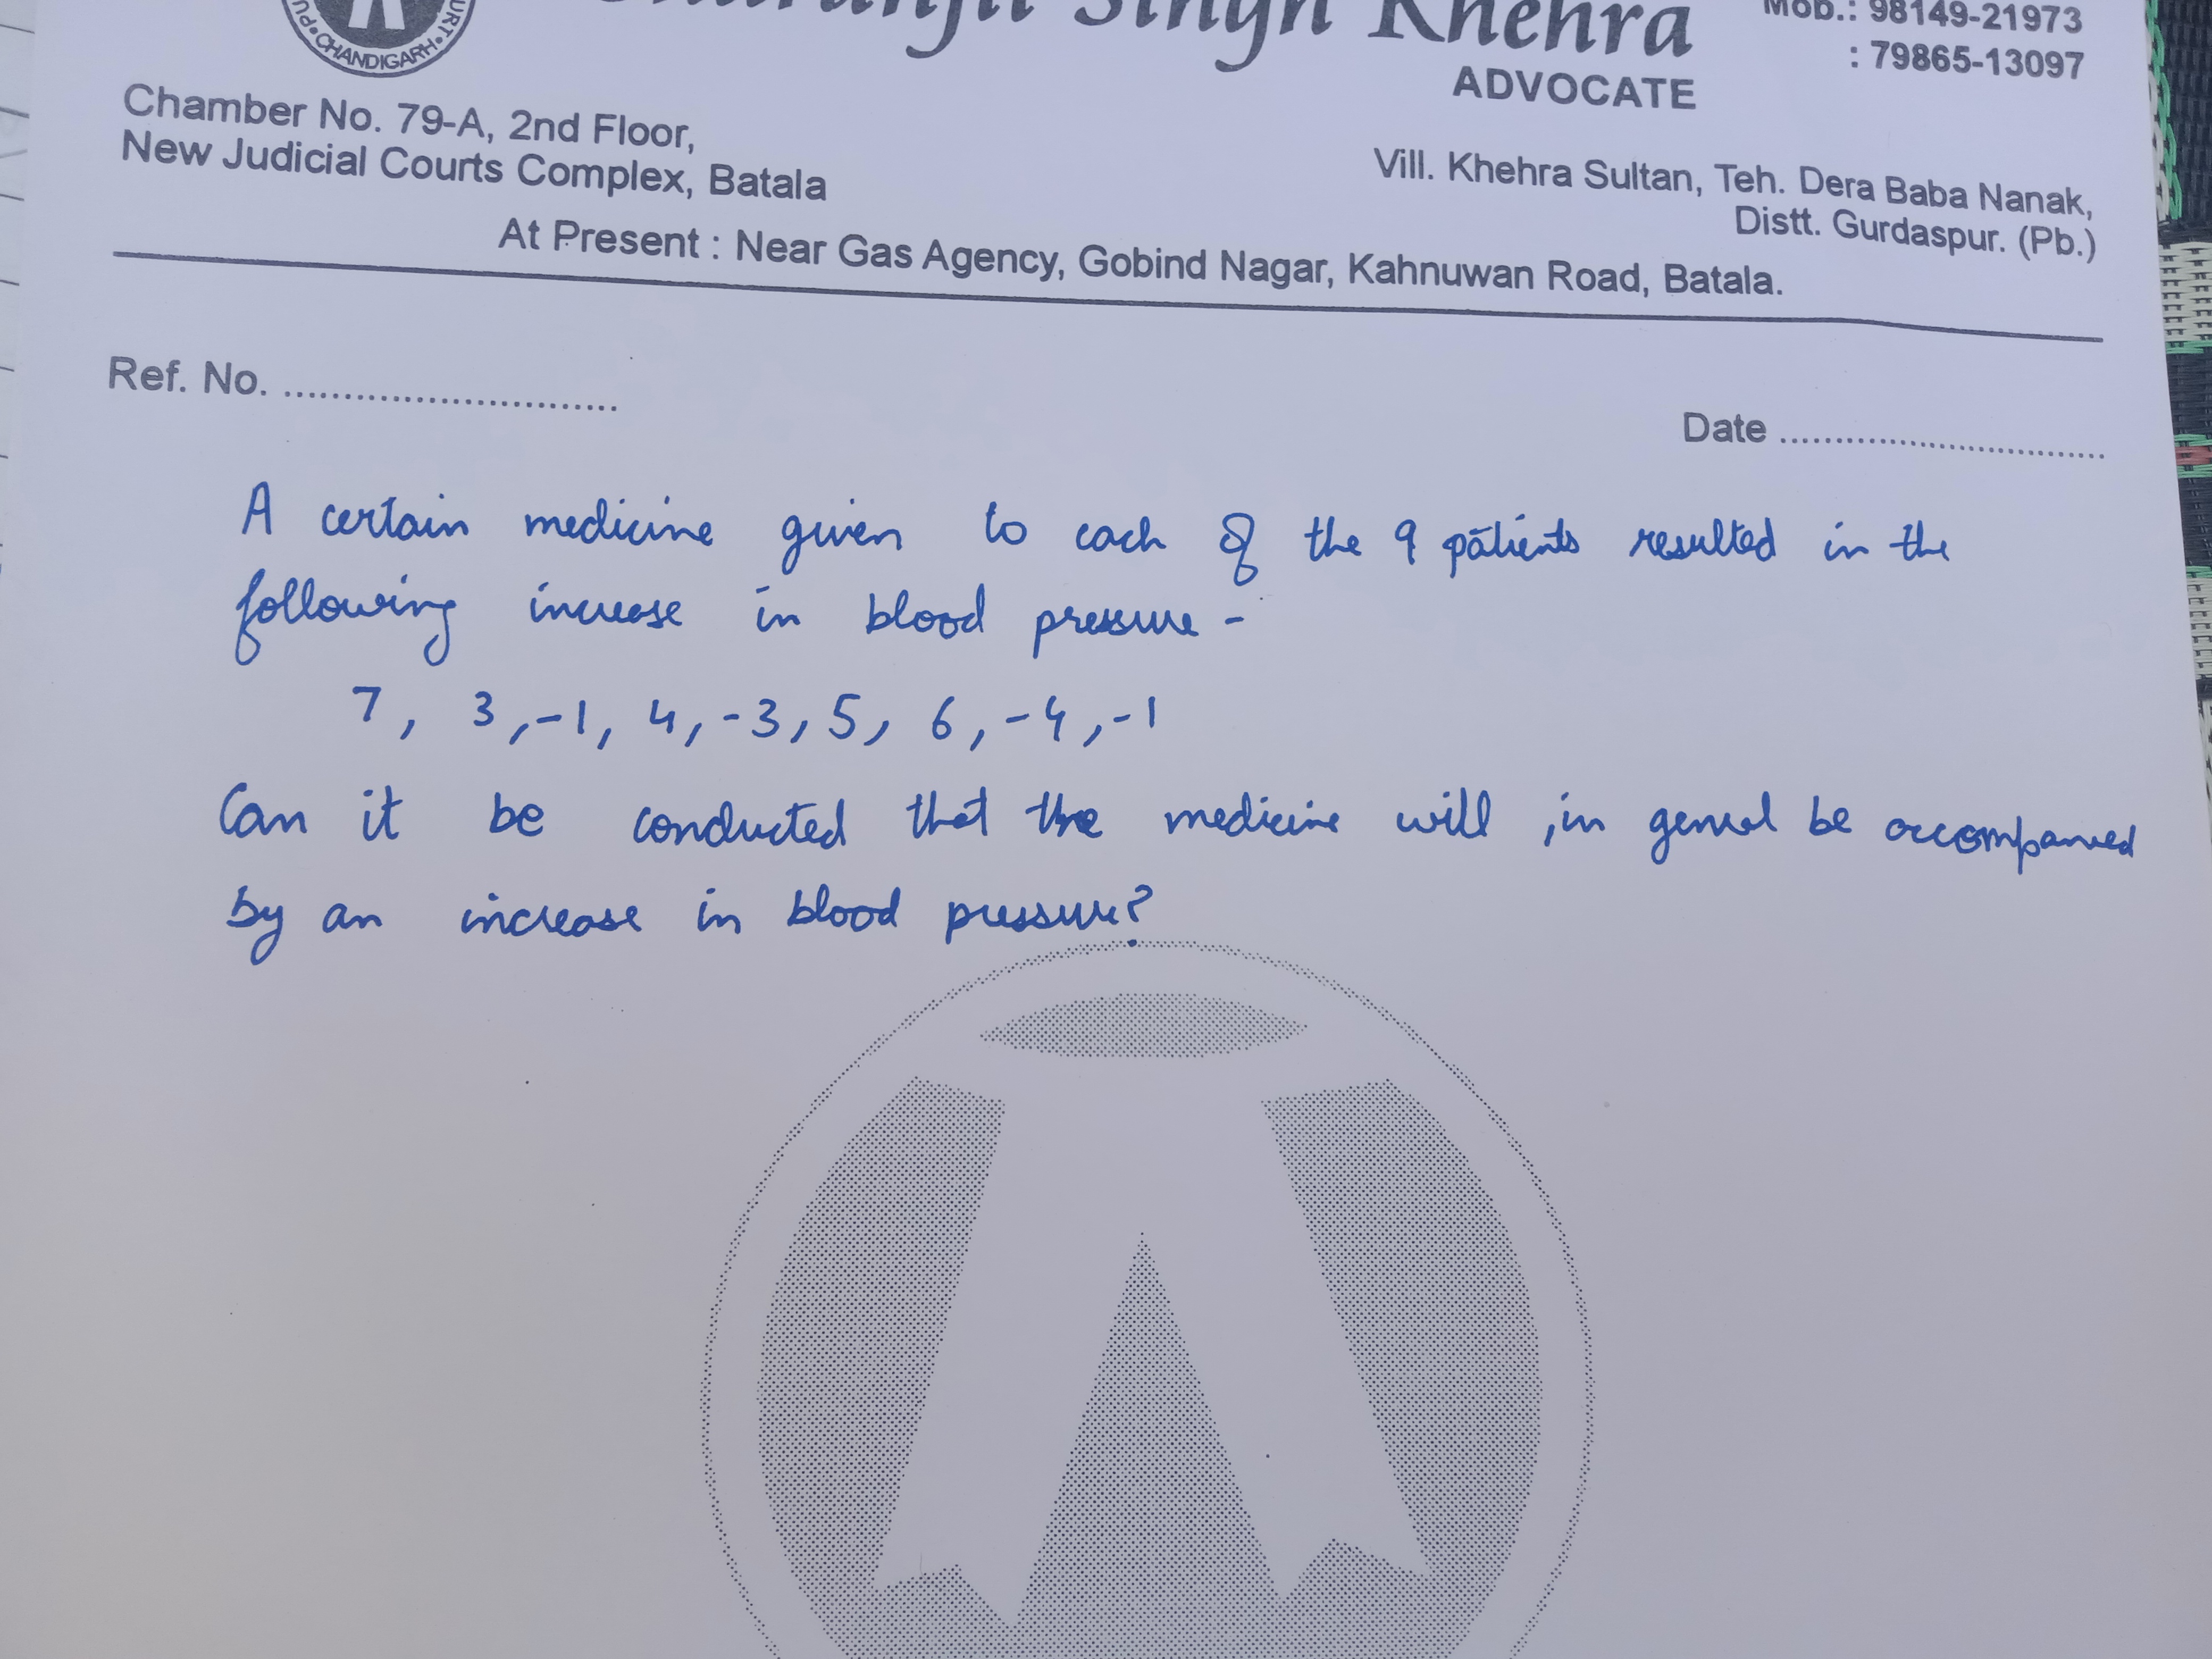 CHANDIGARH
Singh Khehra
Mob.: 98149-21973
: 79865-13097
ADVOCATE
Chamber No. 79-A, 2nd Floor,
New Judicial Courts Complex, Batala
Vill. Khehra Sultan, Teh. Dera Baba Nanak,
Distt. Gurdaspur. (Pb.)
At Present : Near Gas Agency, Gobind Nagar, Kahnuwan Road, Batala.
Ref. No. ............................
Date ............................
A certain medicine given to each of the 9 patients resulted in the
following increase in blood pressure -
7, 3, -1, 4, -3, 5, 6, -4, -1
Can it be conducted that the medicine will, in general be accompanied
by an increase in blood pressure?